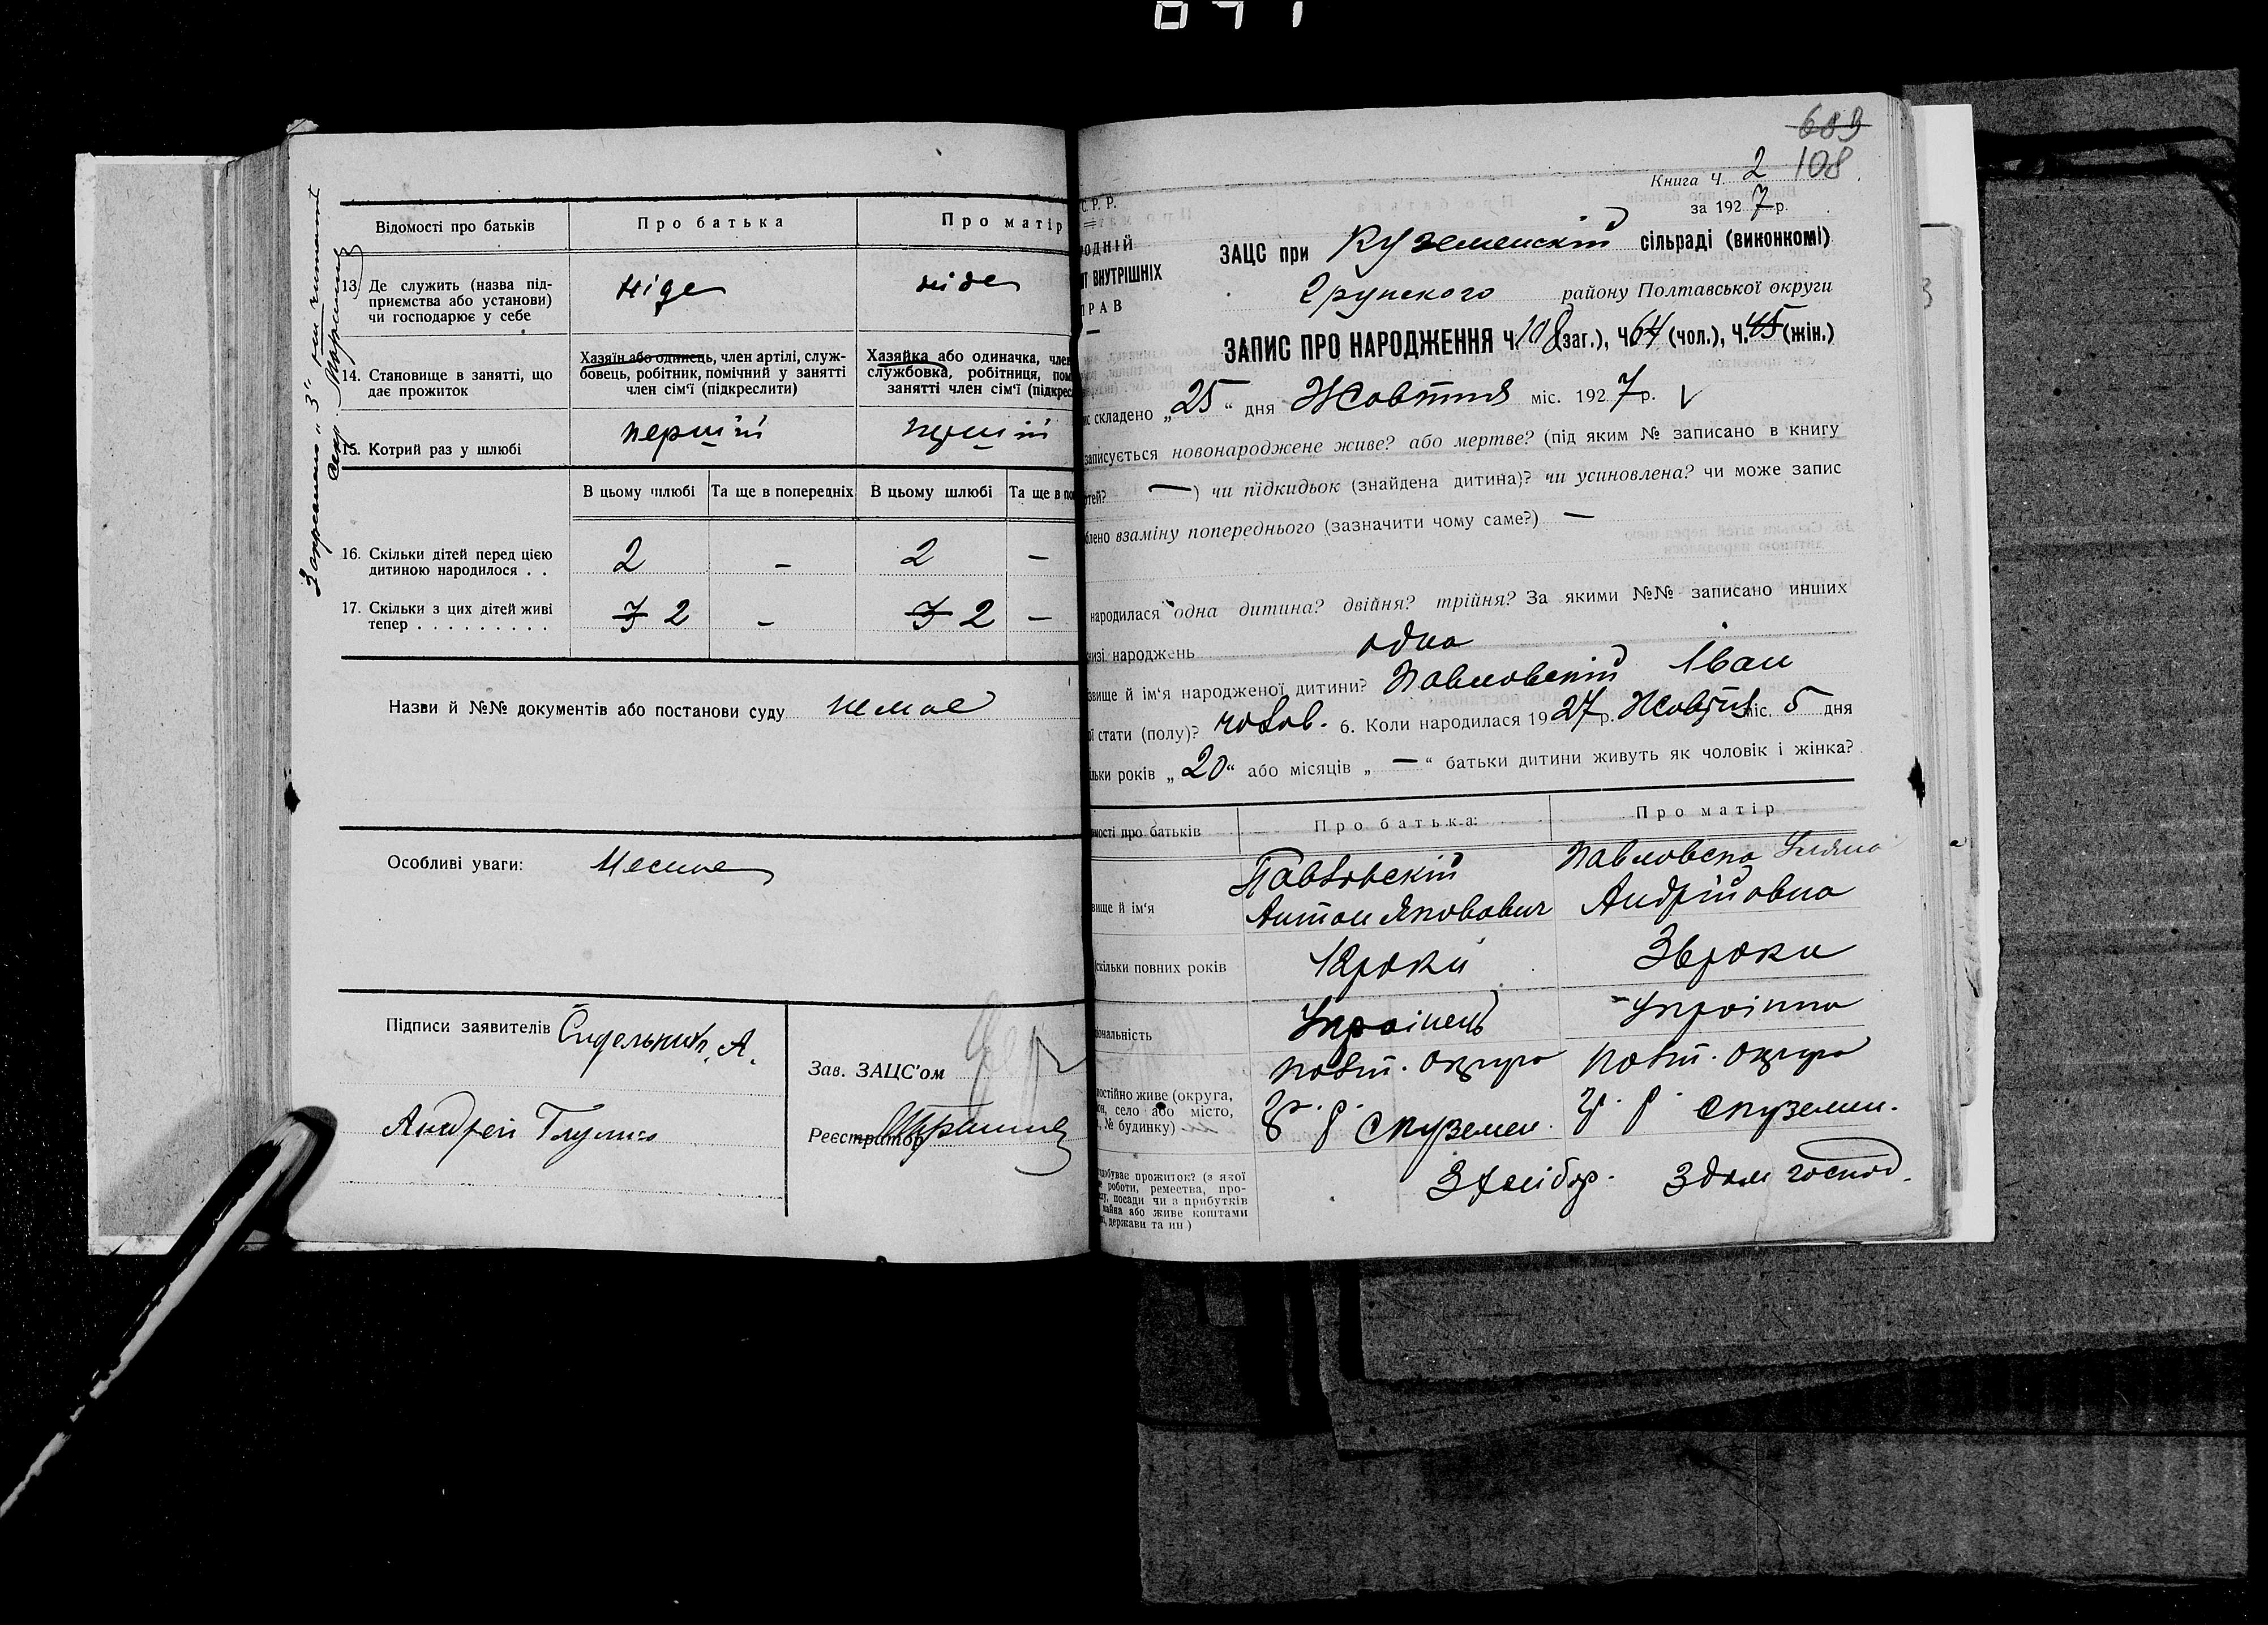 Відомості про батьків
Про батька
Про матір
13. Де служить (назва під-
приємства або установи)
чи господарює у себе
ніде
ніде
14. Становище в занятті, що
дає прожиток
Хазяїн або одинець, член артілі, служ-
бовець, робітник, помічний у занятті
член сім'ї (підкреслити)
Хазяйка або одиначка, член
службовка, робітниця, пом
занятті член сім'ї (підкрес
15. Котрий раз у шлюбі
перший
перший
В цьому шлюбі
Та ще в попередніх
В цьому шлюбі
Та ще в по
16. Скільки дітей перед цією
дитиною народилося . .
2
-
2
-
17. Скільки з цих дітей живі
тепер . . . . . . . . .
3 2
-
3 2
-
Назви й №№ документів або постанови суду немае
Особливі уваги:
Підписи заявителів Сидельник А.
Андрей
Зав. ЗАЦС'ом
Реєстратор
689
108
Книга Ч. 2
за 1927 р.
С. Р. Р.
РОДНІЙ
АТ ВНУТРІШНІХ
ПРАВ
ЗАЦС при Куземенскій сільраді (виконкомі)
Грунского району Полтавської округи
ЗАПИС ПРО НАРОДЖЕННЯ Ч. 108 (заг.), Ч. 64 (чол.), Ч. 45 (жін.)
складено „25“ дня Жовтня міс. 1927 р. V
записується новонароджене живе? або мертве? (під яким № записано в книгу
ртей? —) чи підкидьок (знайдена дитина)? чи усиновлена? чи може запис
блено взаміну попереднього (зазначити чому саме?) —
народилася одна дитина? двійня? трійня? За якими №№ записано инших
низі народжень одна
звище й ім'я народженої дитини? Павловскій Іван
ої стати (полу)? чолов. 6. Коли народилася 1927 р. Жовтня міс. 5 дня
ільки років „20“ або місяців „—“ батьки дитини живуть як чоловік і жінка?
мості про батьків
Про батька:
Про матір
вище й ім'я
Павловскій
Антон Яковович
Павловска
Андріовна
скільки повних років
роки
роки
іональність
Украінець
Украінка
постійно живе (округа,
он, село або місто,
, № будинку)
Полт. округа
Гр. р. с Куземен.
Полт. округа
Гр. р. с Куземен.
здобуває прожиток? (з якої
е роботи, ремества, про-
слу, посади чи з прибутків
майна або живе коштами
і, держави та ин)
З хлібор.
З дом господ.